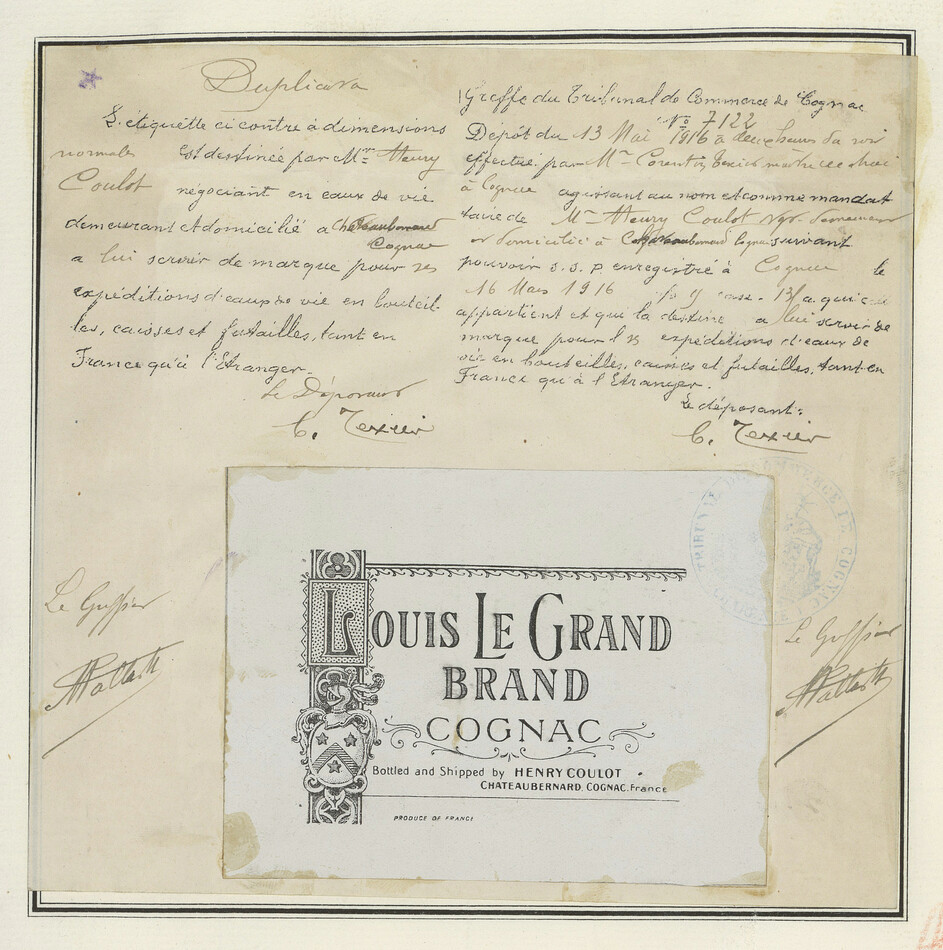 Duplicata
L'etiquette ci contre à dimensions
normales est destinée par Mr Henry
Coulot négociant en eaux de vie
demeurant et domicilié à Chateaubernard
Cognac
a lui servir de marque pour ses
expéditions d'eaux de vie en bouteil-
les, caisses et futailles, tant en
France qu'à l'Etranger.
Le Déposant
C. Texier
Greffe du Tribunal de Commerce de Cognac
No 7122
Dépôt du 13 Mai 1916 à deux heures du soir
effectué par Mr Corentin Texier
à Cognac agissant au nom et comme manda-
taire de Mr Henry Coulot Ngt. demeurant
et domicilié à Chateaubernard Cognac suivant
pouvoir s.s.p. enregistré à Cognac le
16 Mars 1916 fo 9 case 13
appartient et que la destine a lui servir de
marque pour ses expéditions d'eaux de
vie en bouteilles, caisses et futailles, tant en
France qu'à l'Etranger.
Le déposant:
C. Texier
Le Greffier
Le Greffier
TRIBUNAL DE COMMERCE DE COGNAC
LOUIS LE GRAND
BRAND
COGNAC
Bottled and Shipped by HENRY COULOT
CHATEAUBERNARD, COGNAC. France
PRODUCE OF FRANCE